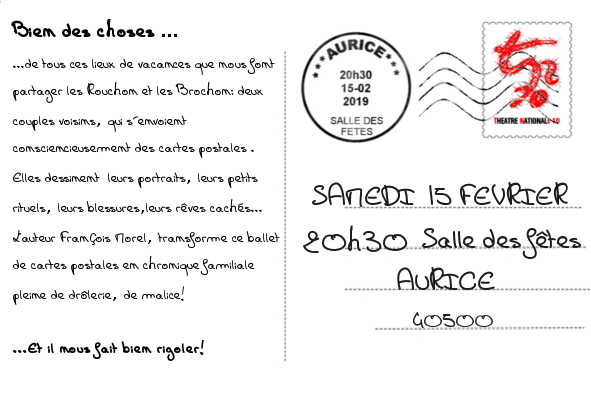 Bien des choses ...
...de tous ces lieux de vacances que nous font
partager les Rouchon et les Brochon: deux
couples voisins, qui s'envoient
consciencieusement des cartes postales.
Elles dessinent leurs portraits, leurs petits
rituels, leurs blessures,leurs rêves cachés...
L'auteur François Morel, transforme ce ballet
de cartes postales en chronique familiale
pleine de drôlerie, de malice!
...Et il nous fait bien rigoler!
***AURICE***
20h30
15-02
2019
SALLE DES
FETES
THEATRE NATIONALE 10
SAMEDI 15 FEVRIER
20h30 Salle des fêtes
AURICE
40500